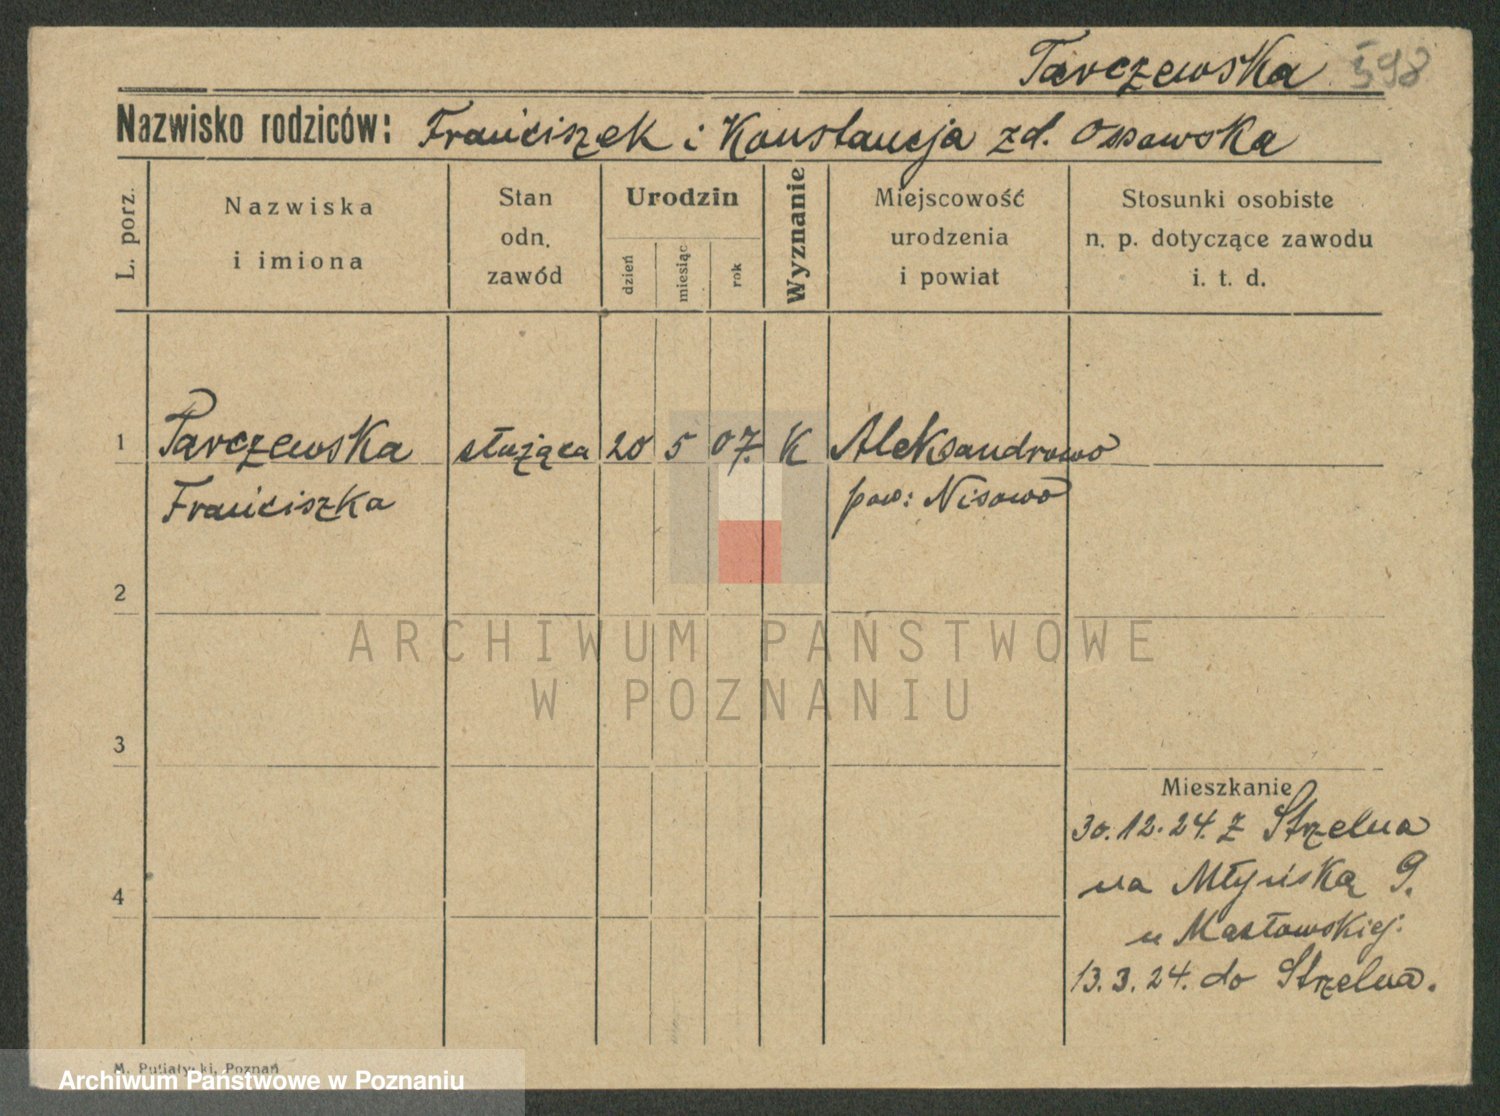 Tarczewska 598
Nazwisko rodziców: Franciszek i Konstancja zd. Ossowska
L. porz.
Nazwiska
i imiona
Stan
odn.
zawód
Urodzin
dzień
miesiąc
rok
Wyznanie
Miejscowość
urodzenia
i powiat
Stosunki osobiste
n. p. dotyczące zawodu
i. t. d.
1 Tarczewska służąca 20 5 07. K Aleksandrowo
Franciszka pow: Nisowo
2
ARCHIWUM PAŃSTWOWE
W POZNANIU
3
Mieszkanie
30.12.24. z Strzelna
4 na Młyńską 9.
u Masłowskiej.
13.3.24. do Strzelna.
M. Putiatycki, Poznań
Archiwum Państwowe w Poznaniu